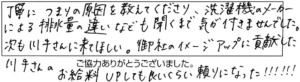 丁寧につまりの原因を教えてくださり、洗濯機のメーカー
による排水量の違いなども聞くまで気が付きませんでした。
次も川手さんに来てほしい。御社のイメージアップに貢献した
川手さんの
ご協力ありがとうございました。
お給料UPしても良いくらい頼りになった!!!!!!